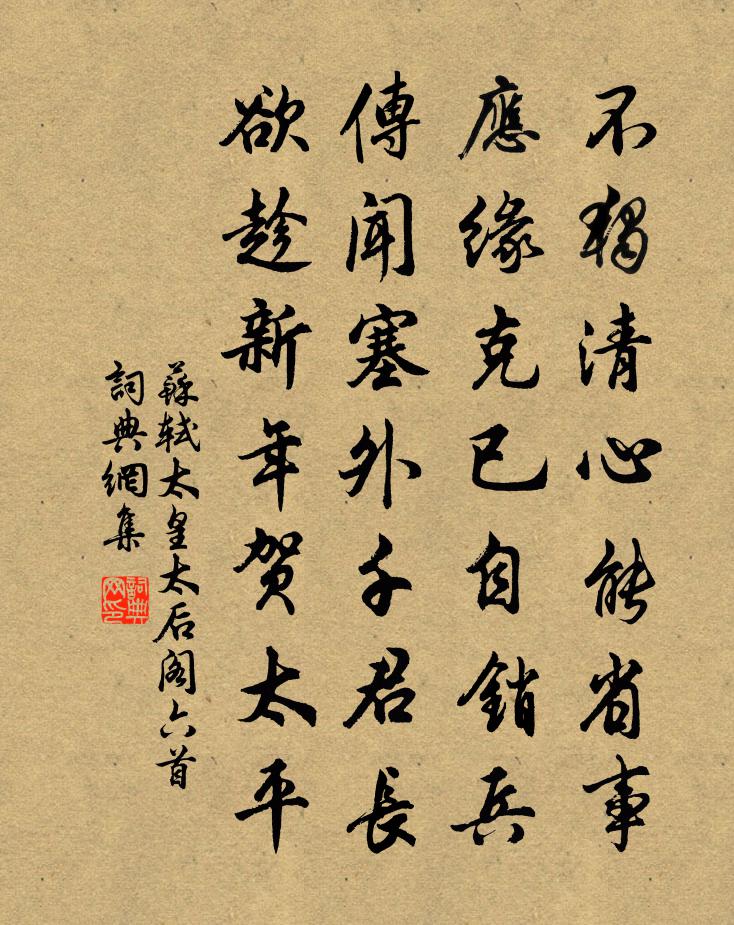 不獨清心能省事
應緣克己自銷兵
傳聞塞外千君長
欲趁新年賀太平
蘇軾太皇太后閣六首
詞典網集
詞典網印